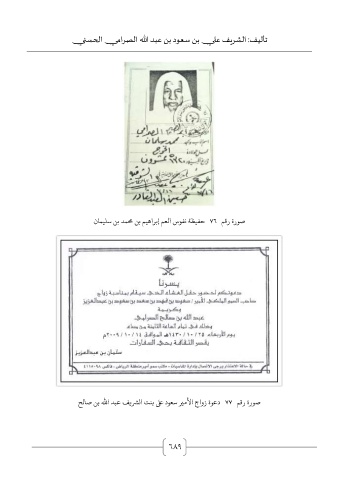 تأليف: الشريف علي بن سعود بن عبد الله الصرامي الحسني
محمد بن سليمان
الخرج
صورة رقم ٧٦ حفيظة نفوس العم إبراهيم بن محمد بن سليمان
يسرنا
دعوتكم لحضور حفل العشاء الذي سيقام بمناسبة زواج
صاحب السمو الملكي الأمير / سعود بن فهد بن سعد بن سعود بن عبدالعزيز
وكريمة
عبد الله بن صالح الصرامي
وذلك في تمام الساعة الثامنة من مساء
يوم الأربعاء ٢٥ / ١٠ / ١٤٣٠هـ الموافق ١٤ / ١٠ / ٢٠٠٩م
بقصر الثقافة بحي السفارات
سلمان بن عبدالعزيز
في حالة الاعتذار يرجى الاتصال بإدارة المناسبات - مكتب سمو أمير منطقة الرياض - فاكس
صورة رقم ٧٧ دعوة زواج الأمير سعود على بنت الشريف عبد الله بن صالح
٦٨٩